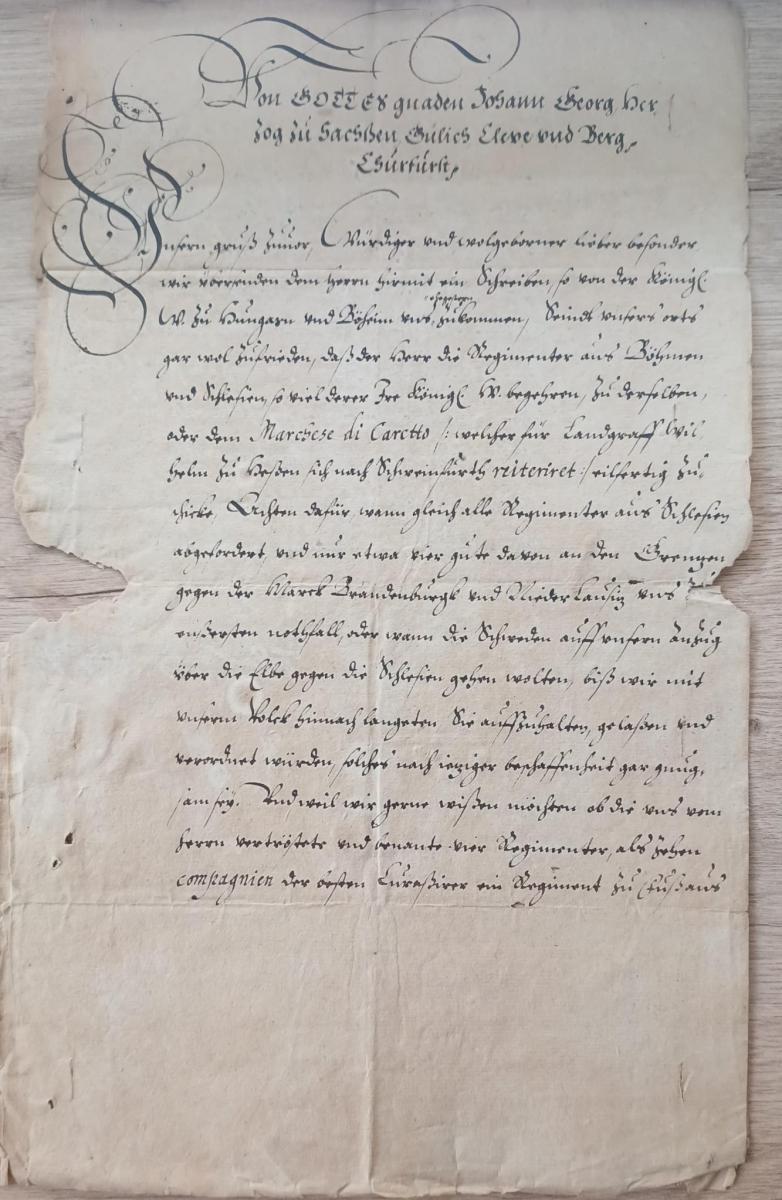 Von GOTTES gnaden Johann Georg, Her,
zog zu Sachßen, Gülich Cleve vnd Berg,
Churfürst,
Vnsern gruß zuuor, Würdiger vnd wolgeborner lieber besonder
wir vbersenden dem Herrn hirmit ein Schreiben, so von der Königl.
W. zu Hungarn vnd Böheim vns, ehegestern zukommen, Seindt vnsers orts
gar wol zufrieden, daß der Herr die Regimenter aus Böhmen
vnd Schlesien, so viel derer Ire Königl. W. begehren, zu derselben,
oder dem Marchese di Caretto /: welcher für Landgraff Wil,
helm zu Heßen sich nach Schweinfurth reiteriret :/ eilfertig zu,
schicke, Erachten dafür, wann gleich alle Regimenter aus Schlesien
abgefordert, vnd nur etwa vier gute davon an den Grentzen
gegen der Marck Brandenburgk vnd Nieder Lausitz vns
eußersten nothfall, oder wann die Schweden auff vnsern anzug
vber die Elbe gegen die Schlesien gehen wolten, biß wir mit
vnserm Volck hinnach langeten Sie auffzuhalten, gelaßen vnd
verordnet würden, solches nach ietziger beschaffenheit gar gnug,
sam sey. Vnd weil wir gerne wißen möchten ob die vns vom
Herrn vertröstete vnd benante vier Regimenter, als zehen
compagnien der besten Curaßirer ein Regiment zu Fuß aus